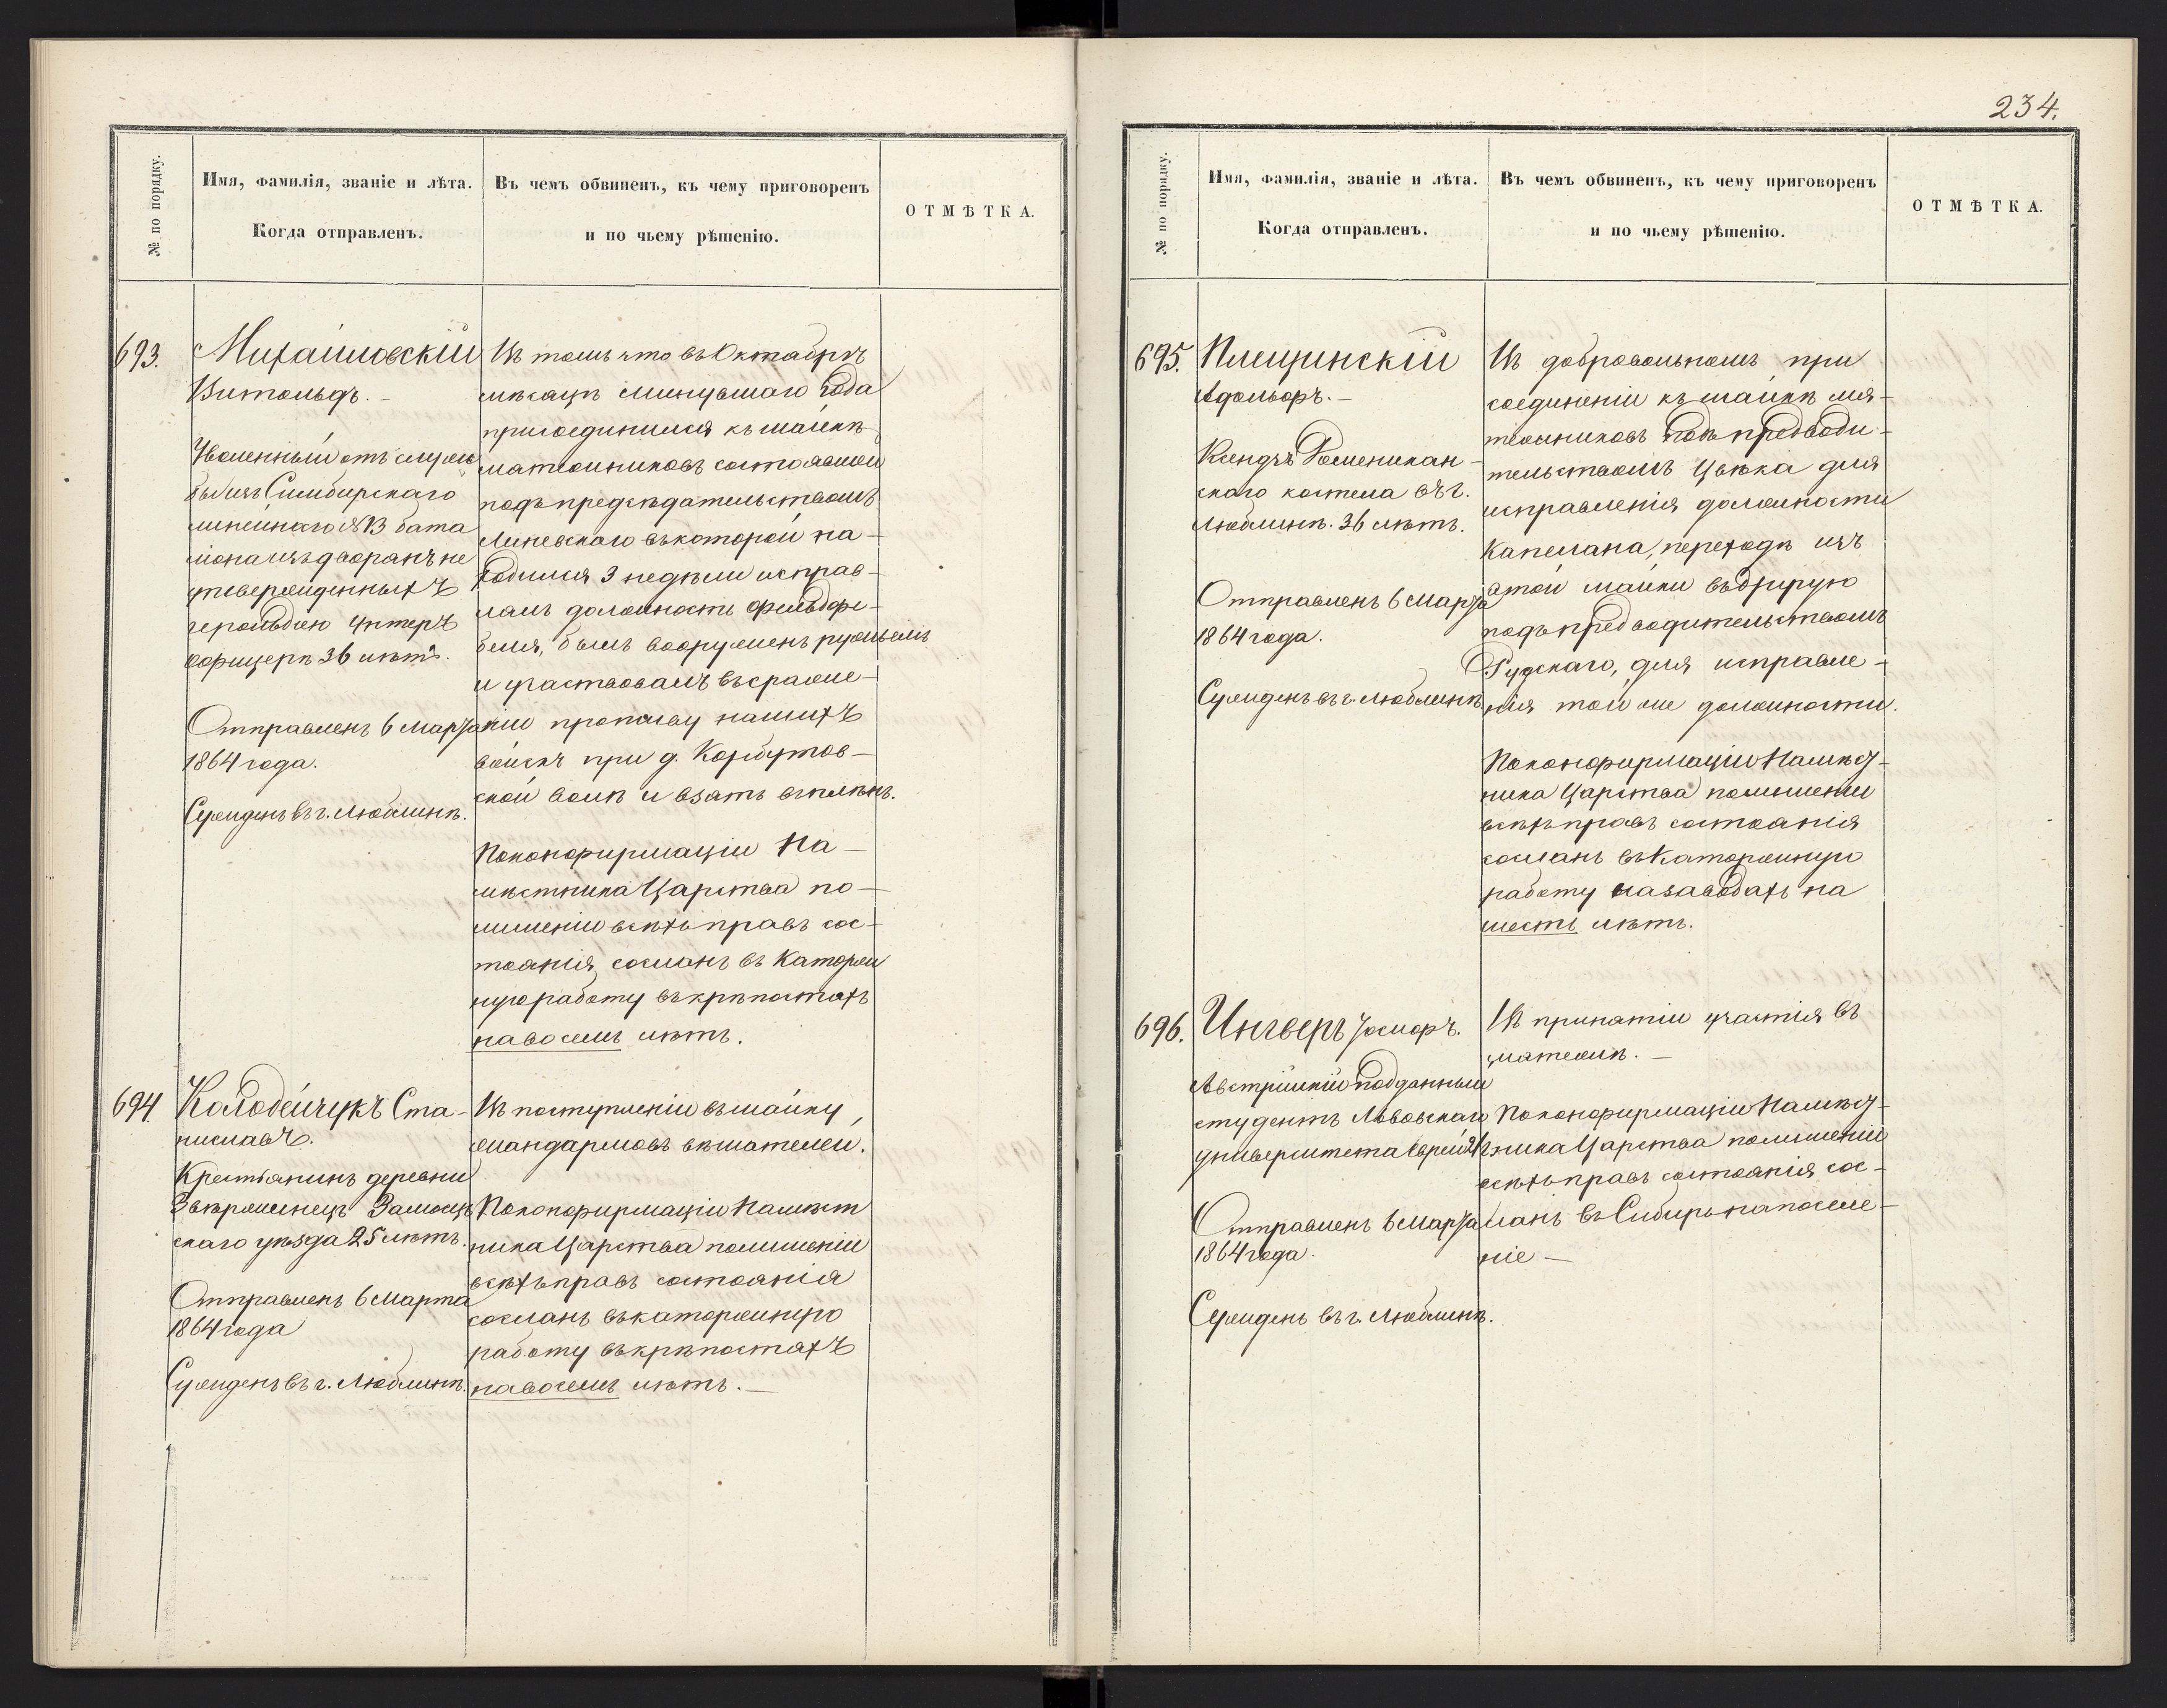 234.
№ по порядку.
Имя, фамилія, званіе и лѣта.
Когда отправленъ.
Въ чемъ обвиненъ, къ чему приговоренъ
и по чьему рѣшенію.
ОТМѢТКА.
693.
Михайловскій
Витольдъ. —
Уволенный отъ служ
бы изъ Симбирскаго
линейнаго №13 бата
ліона изъ дворянъ не
утвержденныхъ
герольдіею унтеръ
офицеръ 36 лѣтъ.
Отправленъ 6 Марта
1864 года.
Сужденъ въ г. Люблинѣ.
Въ томъ что въ Октябрѣ
мѣсяцѣ минувшаго года
присоединился къ шайкѣ
мятежниковъ состоявшей
подъ предсѣдательствомъ
въ которой на-
ходился 3 недѣли исправ-
лялъ должность фельдфе-
беля, былъ вооруженъ ружьемъ
и участвовалъ въ сраже-
ніи противу нашихъ
войскъ при д. Корбутов-
ской волѣ и взятъ въ плѣнъ.
По конфирмаціи На-
мѣстника Царства по-
лишеніи всѣхъ правъ сос-
тоянія, сосланъ въ каторж
ную работу въ крѣпостяхъ
на восемь лѣтъ.
694.
Колодейчукъ Ста-
ниславъ.
Крестьянинъ деревни
Звѣржинецъ Замосць
скаго уѣзда 25 лѣтъ.
Отправленъ 6 Марта
1864 года
Сужденъ въ г. Люблинѣ.
Въ поступленіи въ шайку
жандармовъ вѣшателей.
По конфирмаціи Намѣст
ника Царства по лишеніи
всѣхъ правъ состоянія
сосланъ въ каторжную
работу въ крѣпостяхъ
на восемь лѣтъ. —
№ по порядку.
Имя, фамилія, званіе и лѣта.
Когда отправленъ.
Въ чемъ обвиненъ, къ чему приговоренъ
и по чьему рѣшенію.
ОТМѢТКА.
695.
Плещинскій
Адольфъ. —
Ксендзъ Доминикан-
скаго костела въ г.
Люблинѣ. 36 лѣтъ.
Отправленъ 6 Марта
1864 года.
Сужденъ въ г. Люблинѣ
Въ добровольномъ при
соединеніи къ шайкѣ мя-
тежниковъ подъ предводи-
тельствомъ Цвѣка для
исправленія должности
Капелана, переходѣ изъ
этой шайки въ другую
подъ предводительствомъ
Рудскаго, для исправле-
нія той же должности.
По конфирмаціи Намѣст-
ника Царства по лишеніи
всѣхъ правъ состоянія
сосланъ въ каторжную
работу на заводахъ на
шесть лѣтъ.
696.
Ингверъ Іосифъ.
Австрійскій подданный
студентъ Львовскаго
университета Еврей 21 г.
Отправленъ 6 Марта
1864 года.
Сужденъ въ г. Люблинѣ.
Въ принятіи участія въ
мятежѣ. —
По конфирмаціи Намѣст-
ника Царства по лишеніи
всѣхъ правъ состоянія сос-
ланъ въ Сибирь на поселе-
ніе —